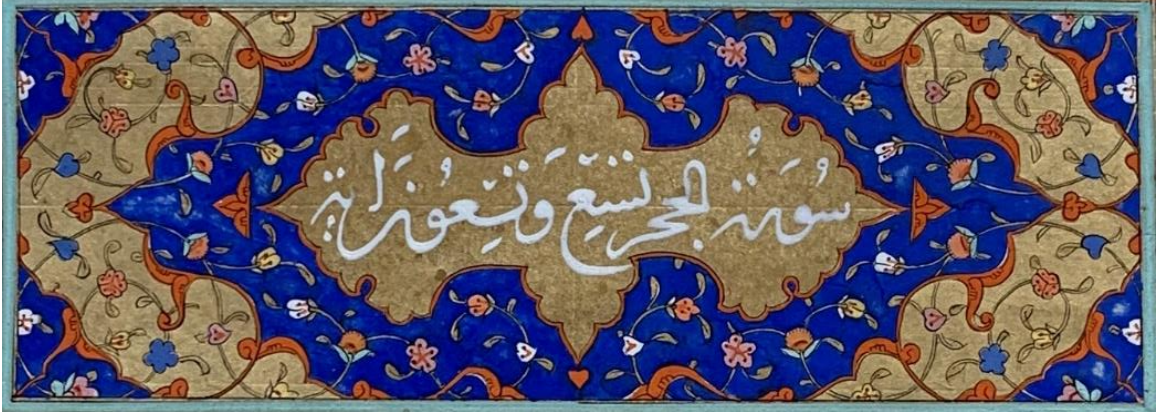 سُورَةُ الحجر تسع وَتسعون اٰية